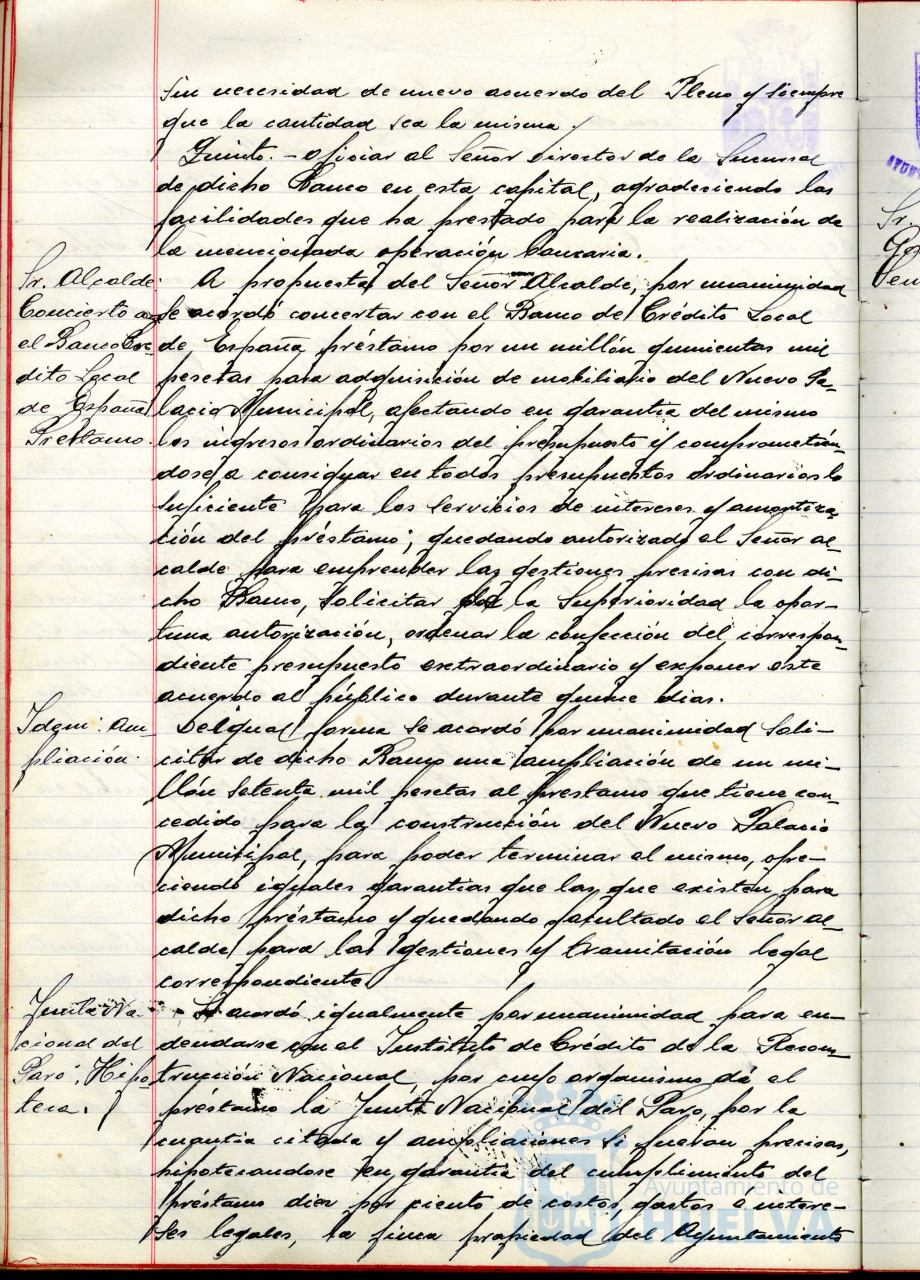 sin necesidad de nuevo acuerdo del Pleno y siempre
que la cantidad sea la misma.
Quinto.- Oficiar al Señor Director de la Sucursal
de dicho Banco en esta capital, agradeciendo las
facilidades que ha prestado para la realización de
la mencionada operación bancaria.
Sr. Alcalde
Concierto
el Banco Cre-
dito Local
de España
Prestamo.
A propuesta del Señor Alcalde, por unanimidad
se acordó concertar con el Banco de Crédito Local
de España préstamo por un millón quinientas mil
pesetas para adquisición de mobiliario del Nuevo Pa-
lacio Municipal, afectando en garantia del mismo
los ingresos ordinarios del presupuesto y comprometién-
dose a consignar en todos presupuestos ordinarios lo
suficiente para los servicios de intereses y amortiza-
ción del préstamo; quedando autorizado el Señor al-
calde para emprender las gestiones precisas con di-
cho Banco, solicitar de la Superioridad la opor-
tuna autorización, ordenar la confección del correspon-
diente presupuesto extraordinario y exponer este
acuerdo al público durante quince dias.
Idem: Am-
pliación.
De igual forma se acordó por unanimidad soli-
citar de dicho Banco una ampliación de un mi-
llón setenta mil pesetas al prestamo que tiene con-
cedido para la construcción del Nuevo Palacio
Municipal, para poder terminar el mismo, ofre-
ciendo iguales garantias que las que existen para
dicho préstamo y quedando facultado el Señor al-
calde para las gestiones y tramitación legal
correspondiente.
Junta Na-
cional del
Paro, Hipo-
teca.
Se acordó igualmente por unanimidad para en-
deudarse con el Instituto de Crédito de la Recons-
trucción Nacional, por cuyo organismo dá el
préstamo la Junta Nacional del Paro, por la
cuantia citada y ampliaciones si fueran precisas,
hipotecandose en garantia del cumplimiento del
préstamo diez por ciento de costos, gastos e intere-
ses legales, la finca propiedad del Ayuntamiento
Ayuntamiento de
HUELVA
Sr.